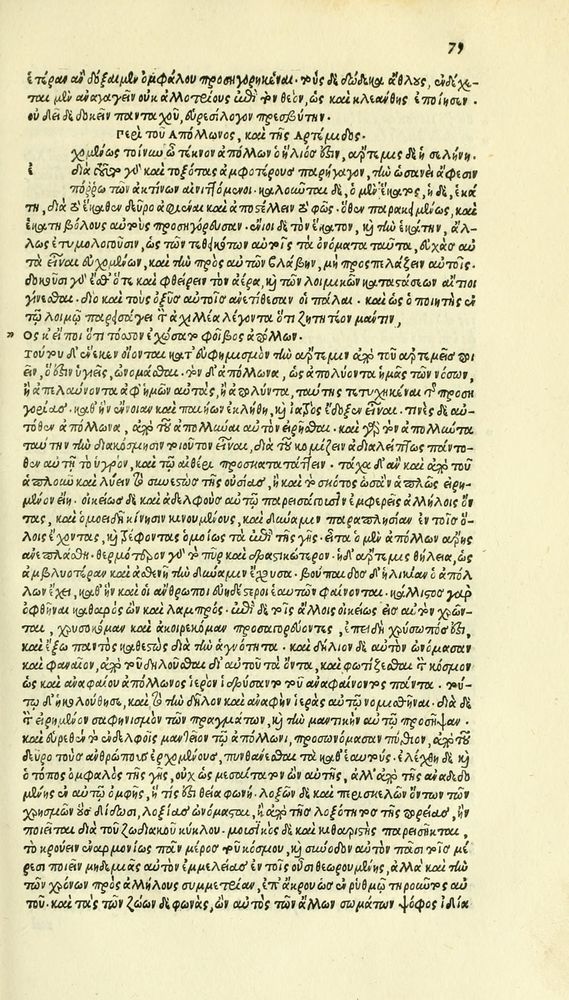 79
ἑτέραν ἂν δόξαιμεν ὀμφάλου προσηγορηκέναι. τοὺς δὲ δώδεκα ἄθλους, ἐνδέχε-
ται μὲν ἀναγαγεῖν οὐκ ἀλλοτρίως ἐπὶ τὸν θεὸν, ὡς καὶ κλεάνθης ἐποίησεν.
οὐ δεῖ δὲ δοκεῖν πανταχοῦ, εὑρεσίλογον πρεσβύτην.
Περὶ τοῦ Ἀπόλλωνος, καὶ τῆς Ἀρτέμιδος.
ε χομένως τοίνυν ὦ τέκνον ἀπόλλων ὁ ἥλιός ἐστιν, ἄρτεμις δὲ ἡ σελήνη.
διὰ τοῦτο γὰρ καὶ τοξότας ἀμφοτέρους παρήγαγον, τὴν ὡσανεὶ ἄφεσιν
πόρρω τῶν ἀκτίνων αἰνιττόμενοι. καλοῦνται δὲ, ὁ μὲν ἕκατος, ἡ δὲ, ἑκά
τη, διὰ τὸ ἕκαθεν δεῦρο ἀφιέναι καὶ ἀποστέλλειν τὸ φῶς. ὅθεν παρακειμένως, καὶ
ἑκατηβόλους αὐτοὺς προσηγόρευσαν. ἔνιοι δὲ τὸν ἕκατον, καὶ τὴν ἑκάτην, ἄλ-
λως ἐτυμολογοῦσιν, ὡς τῶν τεθεικότων αὐτοῖς τὰ ὀνόματα ταῦτα, ἑκὰς αὐ
τὰ εἶναι εὐχομένων, καὶ τὴν πρὸς αὐτῶν βλάβην, μὴ προσπελάζειν αὐτοῖς.
δοκοῦσι γὰρ ἔσθ' ὅτε καὶ φθείρειν τὸν ἀέρα, καὶ τῶν λοιμικῶν καταστάσεων αἴτιοι
γίνεσθαι. διὸ καὶ τοὺς ὀξεῖς αὐτοῖς ἀνετίθεσαν οἱ πάλαι. καὶ ὡς ὁ ποιητὴς ἐν
τῷ λοιμῷ παρεισάγει τὸν ἀχιλλέα λέγοντα ὅτι ζητητέον μάντιν,
Ὅς κ' εἴποι ὅτι τόσσον ἐχώσατο φοῖβος ἀπόλλων.
Τούτου δ' ἕνεκεν οἴονται κατ' εὐφημισμὸν τὴν ἄρτεμιν ἀπὸ τοῦ ἀρτεμεῖς ποι
εῖν, ὅ ἐστιν ὑγιεῖς, ὠνομάσθαι. τὸν δ' ἀπόλλωνα, ὡς ἀπολύοντα ἡμᾶς τῶν νόσων,
ἢ ἀπελαύνοντα ἀφ' ἡμῶν αὐτὰς, ἢ ἀπολλύντα, ταύτης τετυχηκέναι τῆς προση
γορίας. καθ' ἣν ἔννοιαν καὶ παιήων ἐκλήθη, καὶ ἰατρὸς ἔδοξεν εἶναι. τινὲς δὲ αὐ-
τόθεν ἀπόλλωνα, ἀπὸ τοῦ ἀπολλύναι αὐτὸν εἰρῆσθαι. καὶ γὰρ τὸν ἀπολλύντα
ταύτην τὴν διακόσμησιν τοῦτον εἶναι, διὰ τοῦ κομίζειν ἀδιαλείπτως πάντο-
θεν αὐτῇ τὸ ὑγρὸν, καὶ τῷ αἰθέρι προσκατατάττειν. τάχα δ' ἂν καὶ ἀπὸ τοῦ
ἁπλοῦν καὶ λύειν τὸ συνεστὸς τῆς οὐσίας, ἢ καὶ τὸ σκότος ὡσὰν ἁπλῶς εἰρη-
μένον εἴη. οἰκείως δὲ καὶ ἀδελφοὺς αὐτοὺς παρεισάγουσιν ἐμφερεῖς ἀλλήλοις ὄν
τας, καὶ ὁμοειδῆ κίνησιν κινουμένους, καὶ δύναμιν παραπλησίαν ἐν τοῖς ὅ-
λοις ἔχοντας, καὶ τρέφοντας ὁμοίως τὰ ἐπὶ τῆς γῆς. εἶτα ὁ μὲν ἀπόλλων ἄρσης
ἀνεπλάσθη. θερμότερον γὰρ τὸ πῦρ καὶ δραστικώτερον. ἡ δ' ἄρτεμις θήλεια, ὡς
ἀμβλυτέραν καὶ ἀσθενῆ τὴν δύναμιν ἔχουσα. βούπαιδος δ' ἡλικίαν ὁ ἀπόλ
λων ἔχει, καθ' ἣν καὶ οἱ ἄνθρωποι εὐειδέστεροι ἑαυτῶν φαίνονται. κάλλιστος γὰρ
ὀφθῆναι καθαρὸς ὢν καὶ λαμπρός. ἐπὶ δὲ τοῖς ἄλλοις οἰκείως εἰς αὐτὸν χρῶν-
ται, χρυσοκόμαν καὶ ἀκειρεκόμαν προσαγορεύοντες, ἐπειδὴ χρυσωπός ἐστι,
καὶ ἔξω παντὸς καθεστὼς διὰ τὴν ἁγνότητα. καὶ δήλιον δὲ αὐτὸν ὠνόμασαν
καὶ φαναῖον, ἀπὸ τοῦ δηλοῦσθαι δι' αὐτοῦ τὰ ὄντα, καὶ φωτίζεσθαι τὸν κόσμον
ὡς καὶ ἀναφαίου ἀπόλλωνος ἱερὸν ἱδρύσαντο τοῦ ἀναφαίνοντος πάντα. τού-
τῳ δ' ἠκολούθησε, καὶ τὸ τὴν δῆλον καὶ ἀνάφην ἱερὰς αὐτοῦ νομισθῆναι. διὰ δὲ
τὸν εἰρημένον σαφηνισμὸν τῶν πραγμάτων, καὶ τὴν μαντικὴν αὐτῷ προσῆψαν.
καὶ εὑρεθὲν τὸ ἐν δελφοῖς μαντεῖον τῷ ἀπόλλωνι, προσωνόμασαν πύθιον, ἀπὸ τοῦ
δεῦρο τοὺς ἀνθρώπους ἐρχομένους, πυνθάνεσθαι τὰ καθ' ἑαυτούς. ἐλέχθη δὲ καὶ
ὁ τόπος ὀμφαλὸς τῆς γῆς, οὐχ ὡς μεσαίτατον ὢν αὐτῆς, ἀλλ' ἀπὸ τῆς ἀναδιδο
μένης ἐν αὐτῷ ὀμφῆς, ἥτις ἐστὶ θεία φωνή. λοξῶν δὲ καὶ περισκελῶν ὄντων τῶν
χρησμῶν οὓς δίδωσι, λοξίας ὠνόμασται, ἢ ἀπὸ τῆς λοξότητος τῆς πορείας, ἣν
ποιεῖται διὰ τοῦ ζωδιακοῦ κύκλου. μουσικὸς δὲ καὶ κιθαριστὴς παρεισῆκται,
τὸ κρούειν ἐναρμονίως πᾶν μέρος τοῦ κόσμου, καὶ συνωδὸν αὐτὸν πᾶσι τοῖς μέ
ρεσι ποιεῖν μηδεμιᾶς αὐτοῦ ἐμμελείας ἐν τοῖς οὖσι θεωρουμένης, ἀλλὰ καὶ τὴν
τῶν χρόνων πρὸς ἀλλήλους συμμετρίαν, ἐπ' ἄκρον ὡς ἐν ῥυθμῷ τηροῦντος αὐ
τοῦ. καὶ τὰς τῶν ζώων δὲ φωνὰς, ὧν αὐτὸς τῶν ἄλλων σωμάτων ψόφος ἰδία